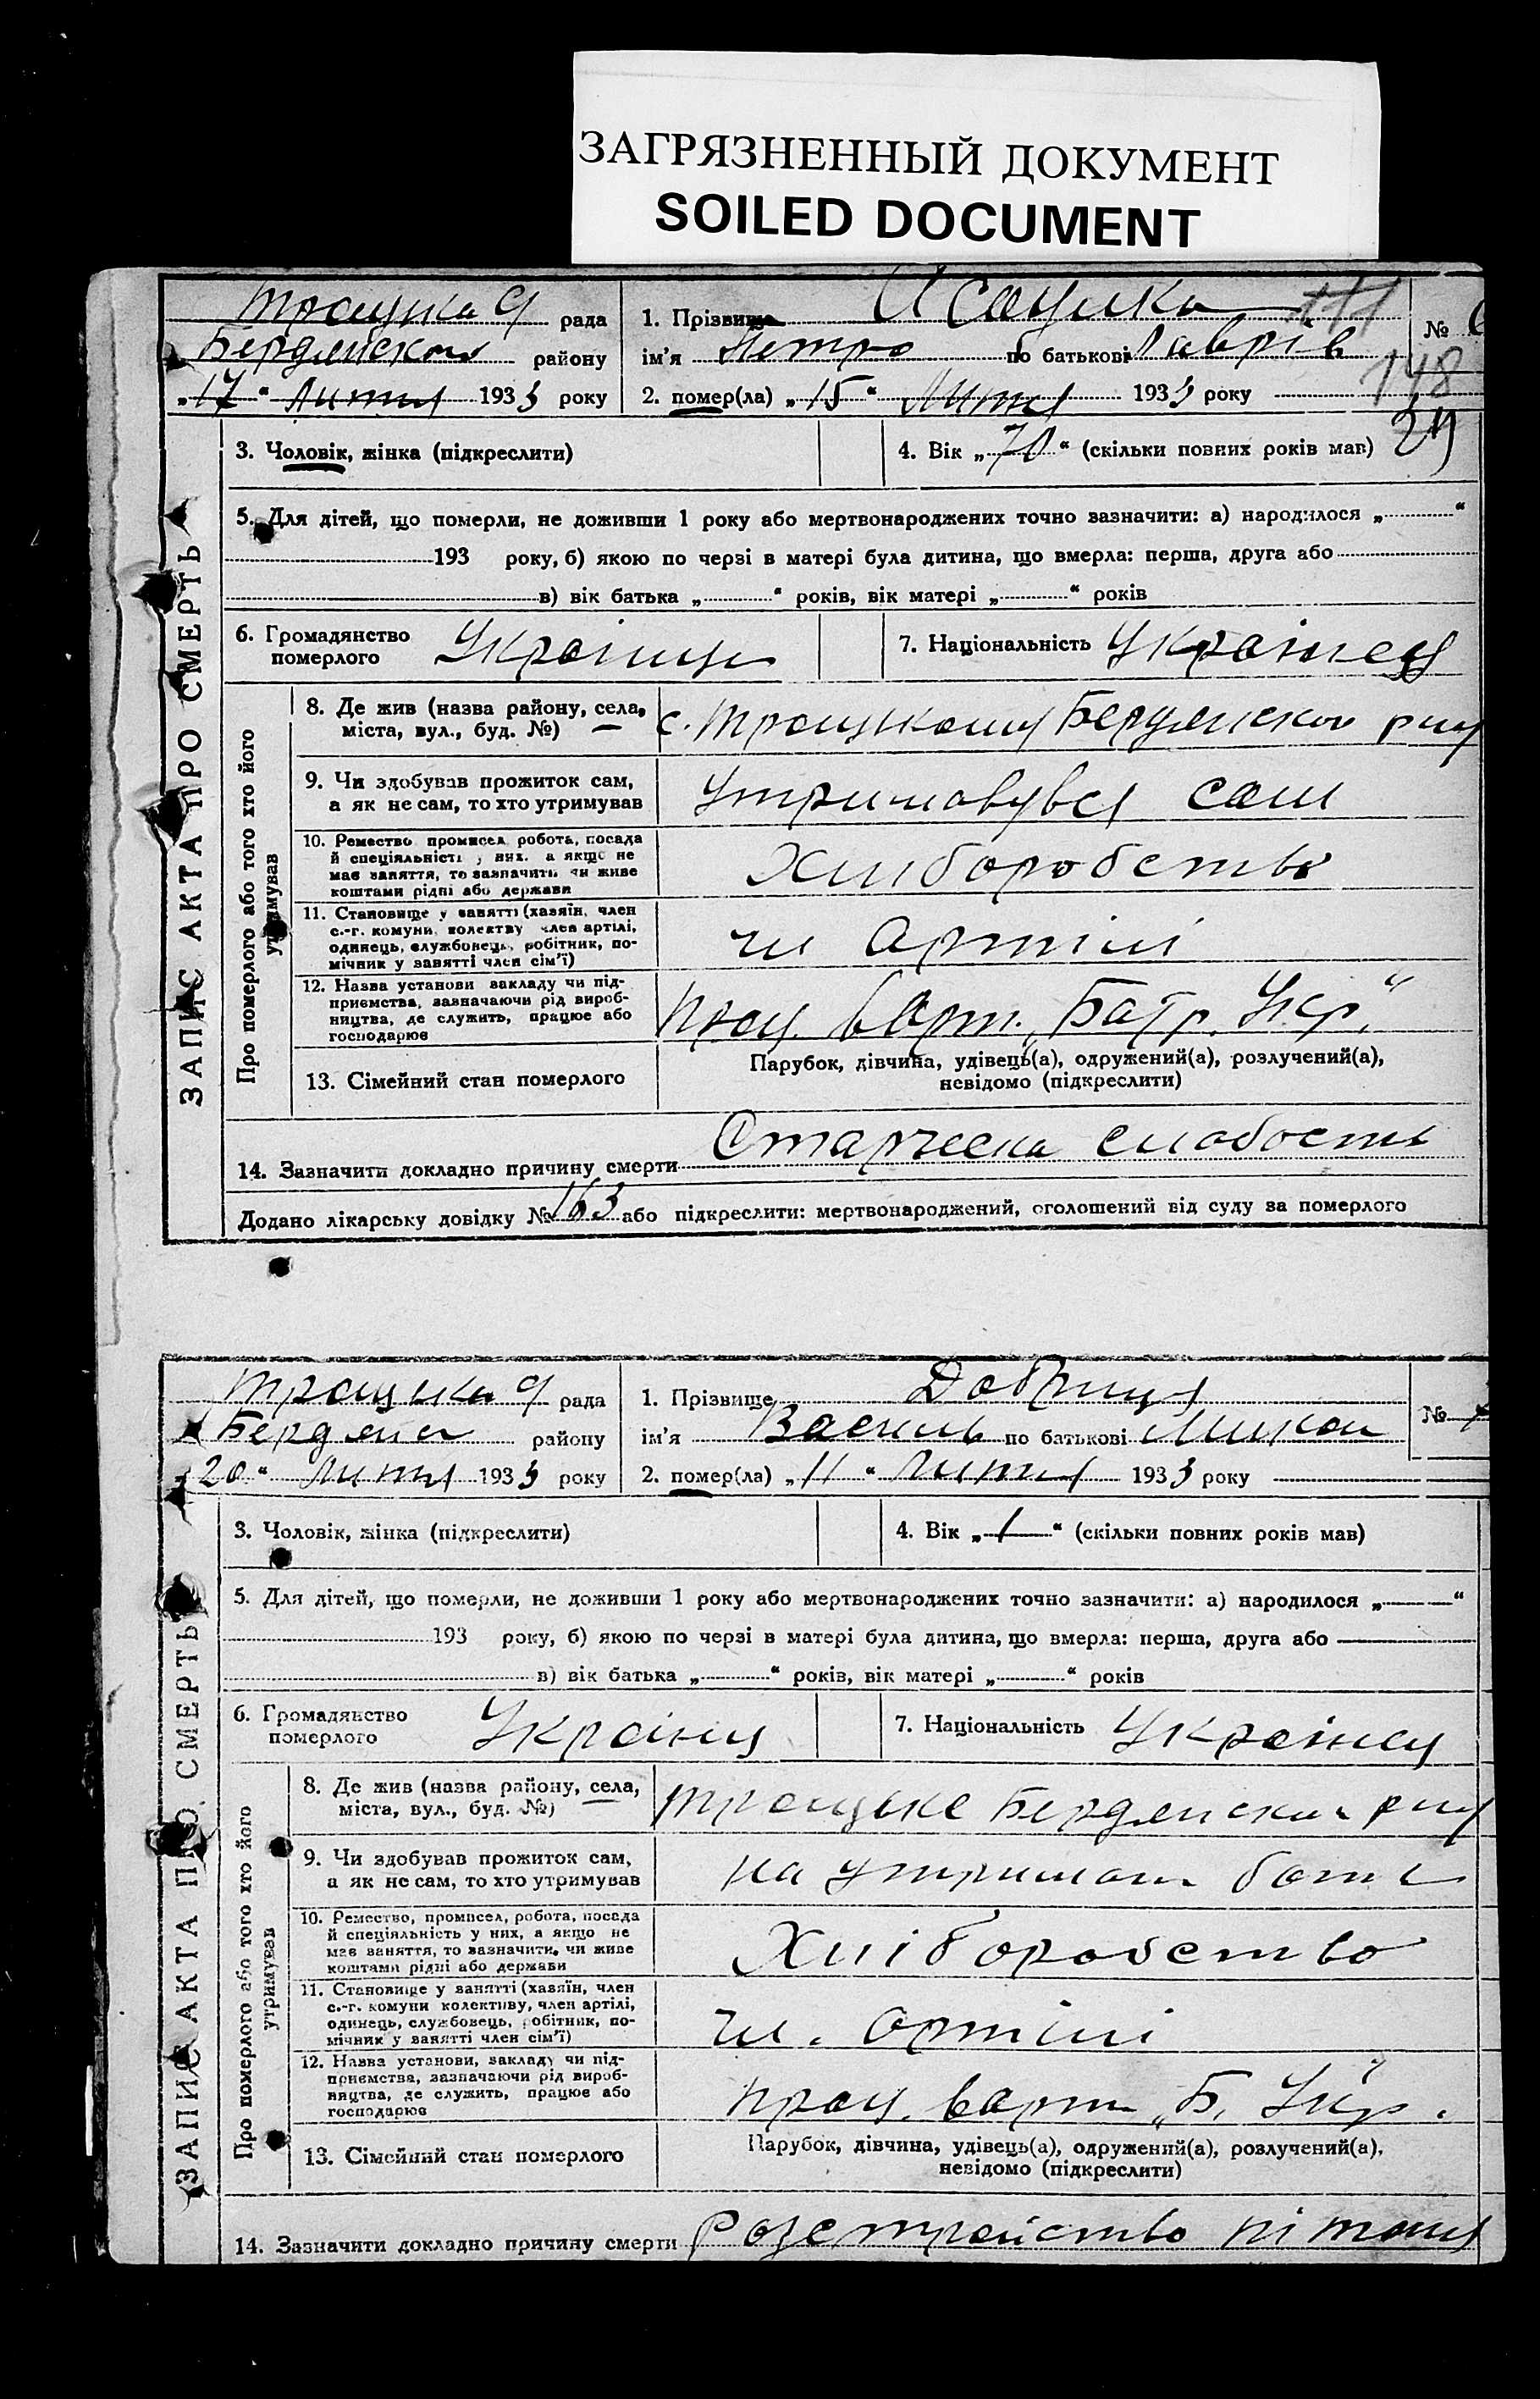 ЗАГРЯЗНЕННЫЙ ДОКУМЕНТ
SOILED DOCUMENT
Троцька рада
Бердянського району
„17“ Лютня 1933 року
1. Прізвище Исаенко 111
ім'я Петро по батькові Лаврів
2. помер(ла) „15“ Лютня 1933 року
№
148
3. Чоловік, жінка (підкреслити)
4. Вік „70“ (скільки повних років мав)
5. Для дітей, що померли, не доживши 1 року або мертвонароджених точно зазначити: а) народилося „ “
193 року, б) якою по черзі в матері була дитина, що вмерла: перша, друга або
в) вік батька „ “ років, вік матері „ “ років
6. Громадянство
померлого Україн
7. Національність Українец
ЗАПИС АКТА ПРО СМЕРТЬ
Про померлого або того хто його
утримував
8. Де жив (назва району, села,
міста, вул., буд. №) с. Троцькому Бердянсков рну
9. Чи здобував прожиток сам,
а як не сам, то хто утримував Утримовувся сам
10. Ремество промисел, робота, посада
й спеціяльність у них. а якщо не
має заняття, то зазначити чи живе
коштами рідні або держави Хлиборобство
11. Становище у занятті (хазяїн, член
с.-г. комуни, колективу член артілі,
одинець, службовець, робітник, по-
мічник у занятті член сім'ї) чл Артілі
12. Назва установи закладу чи під-
приємства, зазначаючи рід вироб-
ництва, де служить, працює або
господарює Прац. в Арт. „Батр. Укр.“
13. Сімейний стан померлого
Парубок, дівчина, удівець(а), одружений(а), розлучений(а),
невідомо (підкреслити)
14. Зазначити докладно причину смерти Старческа слабость
Додано лікарську довідку № 163 або підкреслити: мертвонароджений, оголошений від суду за померлого
Троцька рада
Бердянс району
„20“ Лютня 1933 року
1. Прізвище
ім'я Василь по батькові Микол
2. помер(ла) „11“ Лютня 1933 року
№
3. Чоловік, жінка (підкреслити)
4. Вік „1“ (скільки повних років мав)
5. Для дітей, що померли, не доживши 1 року або мертвонароджених точно зазначити: а) народилося „ “
193 року, б) якою по черзі в матері була дитина, що вмерла: перша, друга або
в) вік батька „ “ років, вік матері „ “ років
6. Громадянство
померлого Україн
7. Національність Українец
ЗАПИС АКТА ПРО СМЕРТЬ
Про померлого або того хто його
утримував
8. Де жив (назва району, села,
міста, вул., буд. №) Троцьке Бердянськ рну
9. Чи здобував прожиток сам,
а як не сам, то хто утримував на утриман батьк
10. Ремество, промисел, робота, посада
й спеціяльність у них, а якщо не
має заняття, то зазначити, чи живе
коштами рідні або держави Хліборобство
11. Становище у занятті (хазяїн, член
с.-г. комуни колективу, член артілі,
одинець, службовець, робітник, по-
мічник у занятті член сім'ї) чл. артілі
12. Назва установи, закладу чи під-
приємства, зазначаючи рід вироб-
ництва, де служить, працює або
господарює прац. в арт „Б. Укр.“
13. Сімейний стан померлого
Парубок, дівчина, удівець(а), одружений(а), розлучений(а),
невідомо (підкреслити)
14. Зазначити докладно причину смерти Розстройство пітания